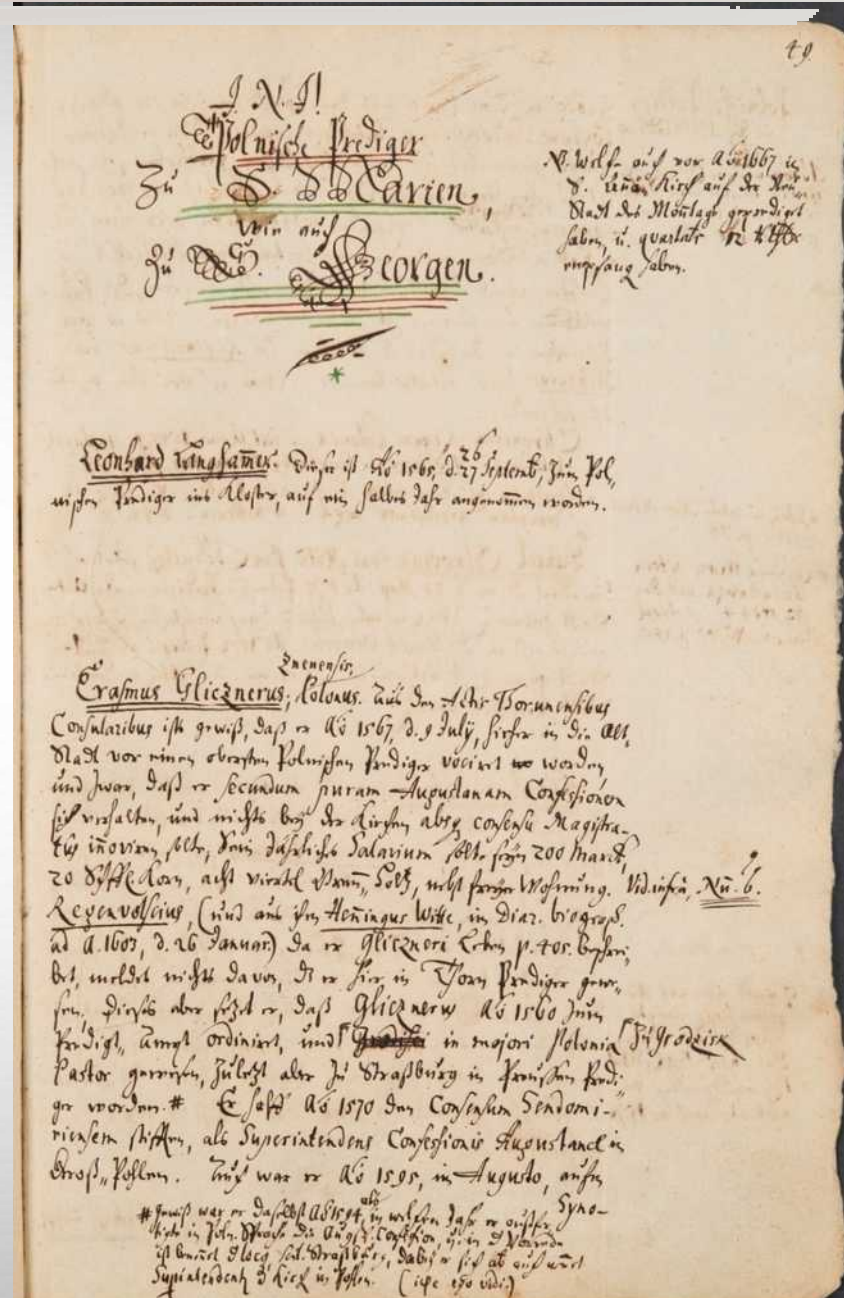 49
I. N. J!
Polnische Prediger
Zu S. Marien,
wie auch
Zu S. Georgen.
N. welche auch vor Ao 1667 in
S. Kirch auf der Neu
Stadt des Montags geprediget
haben, u. quartale 12
empfang haben.
Leonhard Langsamer. Dieser ist Ao 1565, d. 26 27 Septemb, zum Pol,
nischen Prediger ins Kloster, auf ein halbes Jahr angenommen worden.
Znenensis,
Erasmus Glicznerus, Polonus. Aus den Actis Thorunensibus
Consularibus ist gewiß, daß er Ao 1567, d. 9 July, hieher in die Alt,
Stadt vor einen obersten Polnischen Prediger vociret worden,
und zwar, daß er secundum puram Augustanam Confessionem
sich verhalten, und nichts bey der Kirchen absq consensu Magistra-
tus inoviren solte, Sein Jährliches Salarium solte seyn 200 Marck,
20 Korn, acht viertel Holtz, nebst freyer Wohnung. Vid. infra, Nu. 6.
Regenvolscius, (und aus ihm Henningus Witte, in Diar. biograph.
ad A. 1603, d. 26 Januar.) da er Gliczneri Leben p. 405. beschrei-
bet, meldet nichts davon, dz er hier in Thorn Prediger gewe-
sen, dieses aber setzet er, daß Glicznerus Ao 1560 zum
Predigt, Ampt ordiniret, und in majori Polonia zu Grodzisk
Pastor gewesen, zuletzt aber zu Straßburg in Preussen Predi-
ger worden. # Er halff Ao 1570 den Consensum Sendomi-
riensem stifften, als Superintendens Confessionis Augustanae in
Groß, Pohlen. Auch war er Ao 1595, im Augusto, aufm
Syno-
# gewiß war er daselbst Ao 1594, als in welchem Jahr er
in Poln. Sprache die Augsp. Confession, u. in d Vorrede
ist benennet Straßburg, dabey er sich ab auch nennet
Superintendent d Kirch in Pohlen. (ipse ego vidi.)